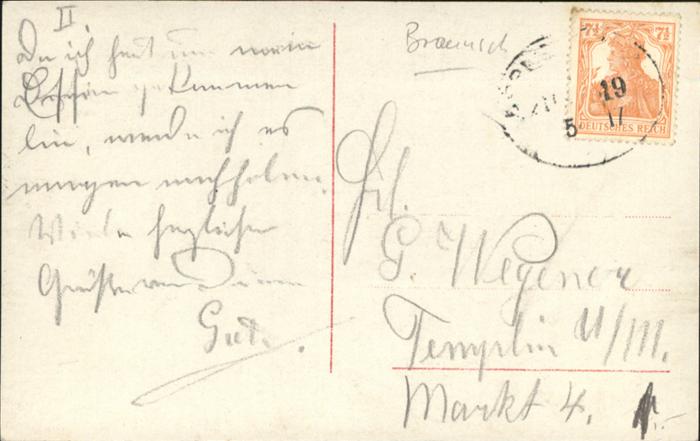 II
Da ich heut um mein
Essen gekommen
bin, werde ich es
morgen nachholen.
Viele herzliche
Grüße von Deinem
Gust.
Braunsch
7½ 7½
DEUTSCHES REICH
19
5 17
Frl.
G. Wegener
Templin U/M.
Markt 4.